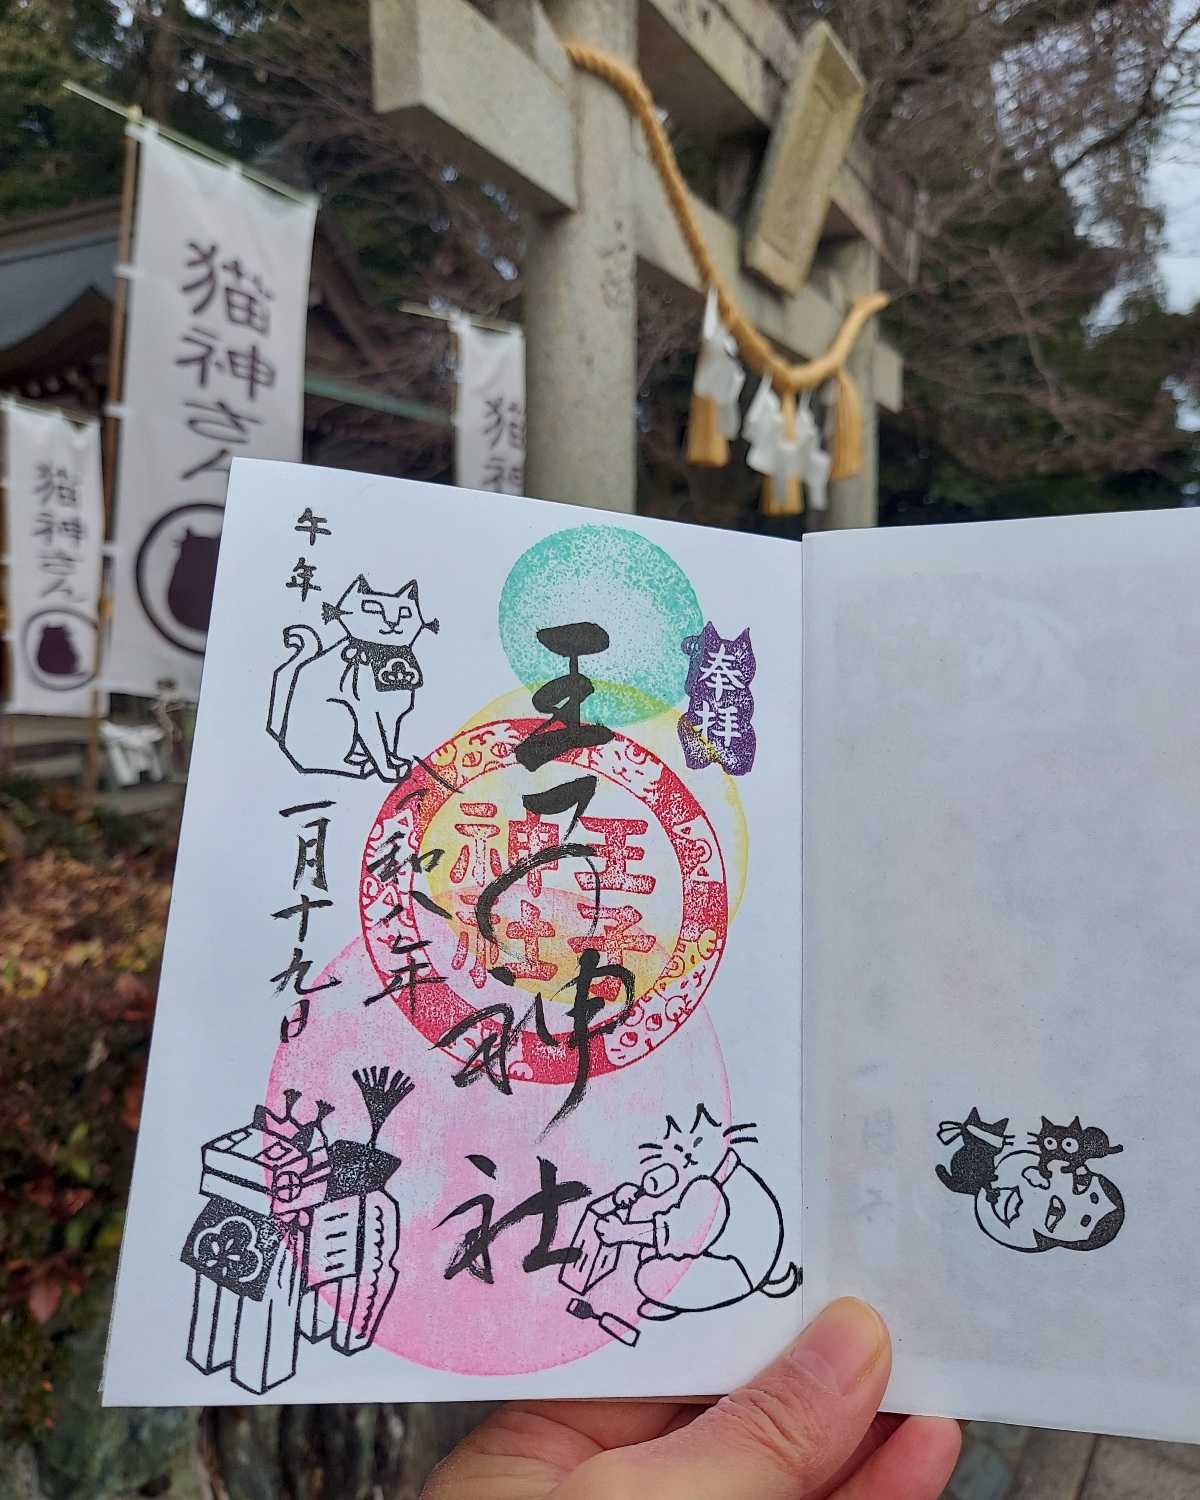 猫神さん
猫神さん
猫神
奉拝
王子神社
王子
神社
令和八年
一月十九日
午年